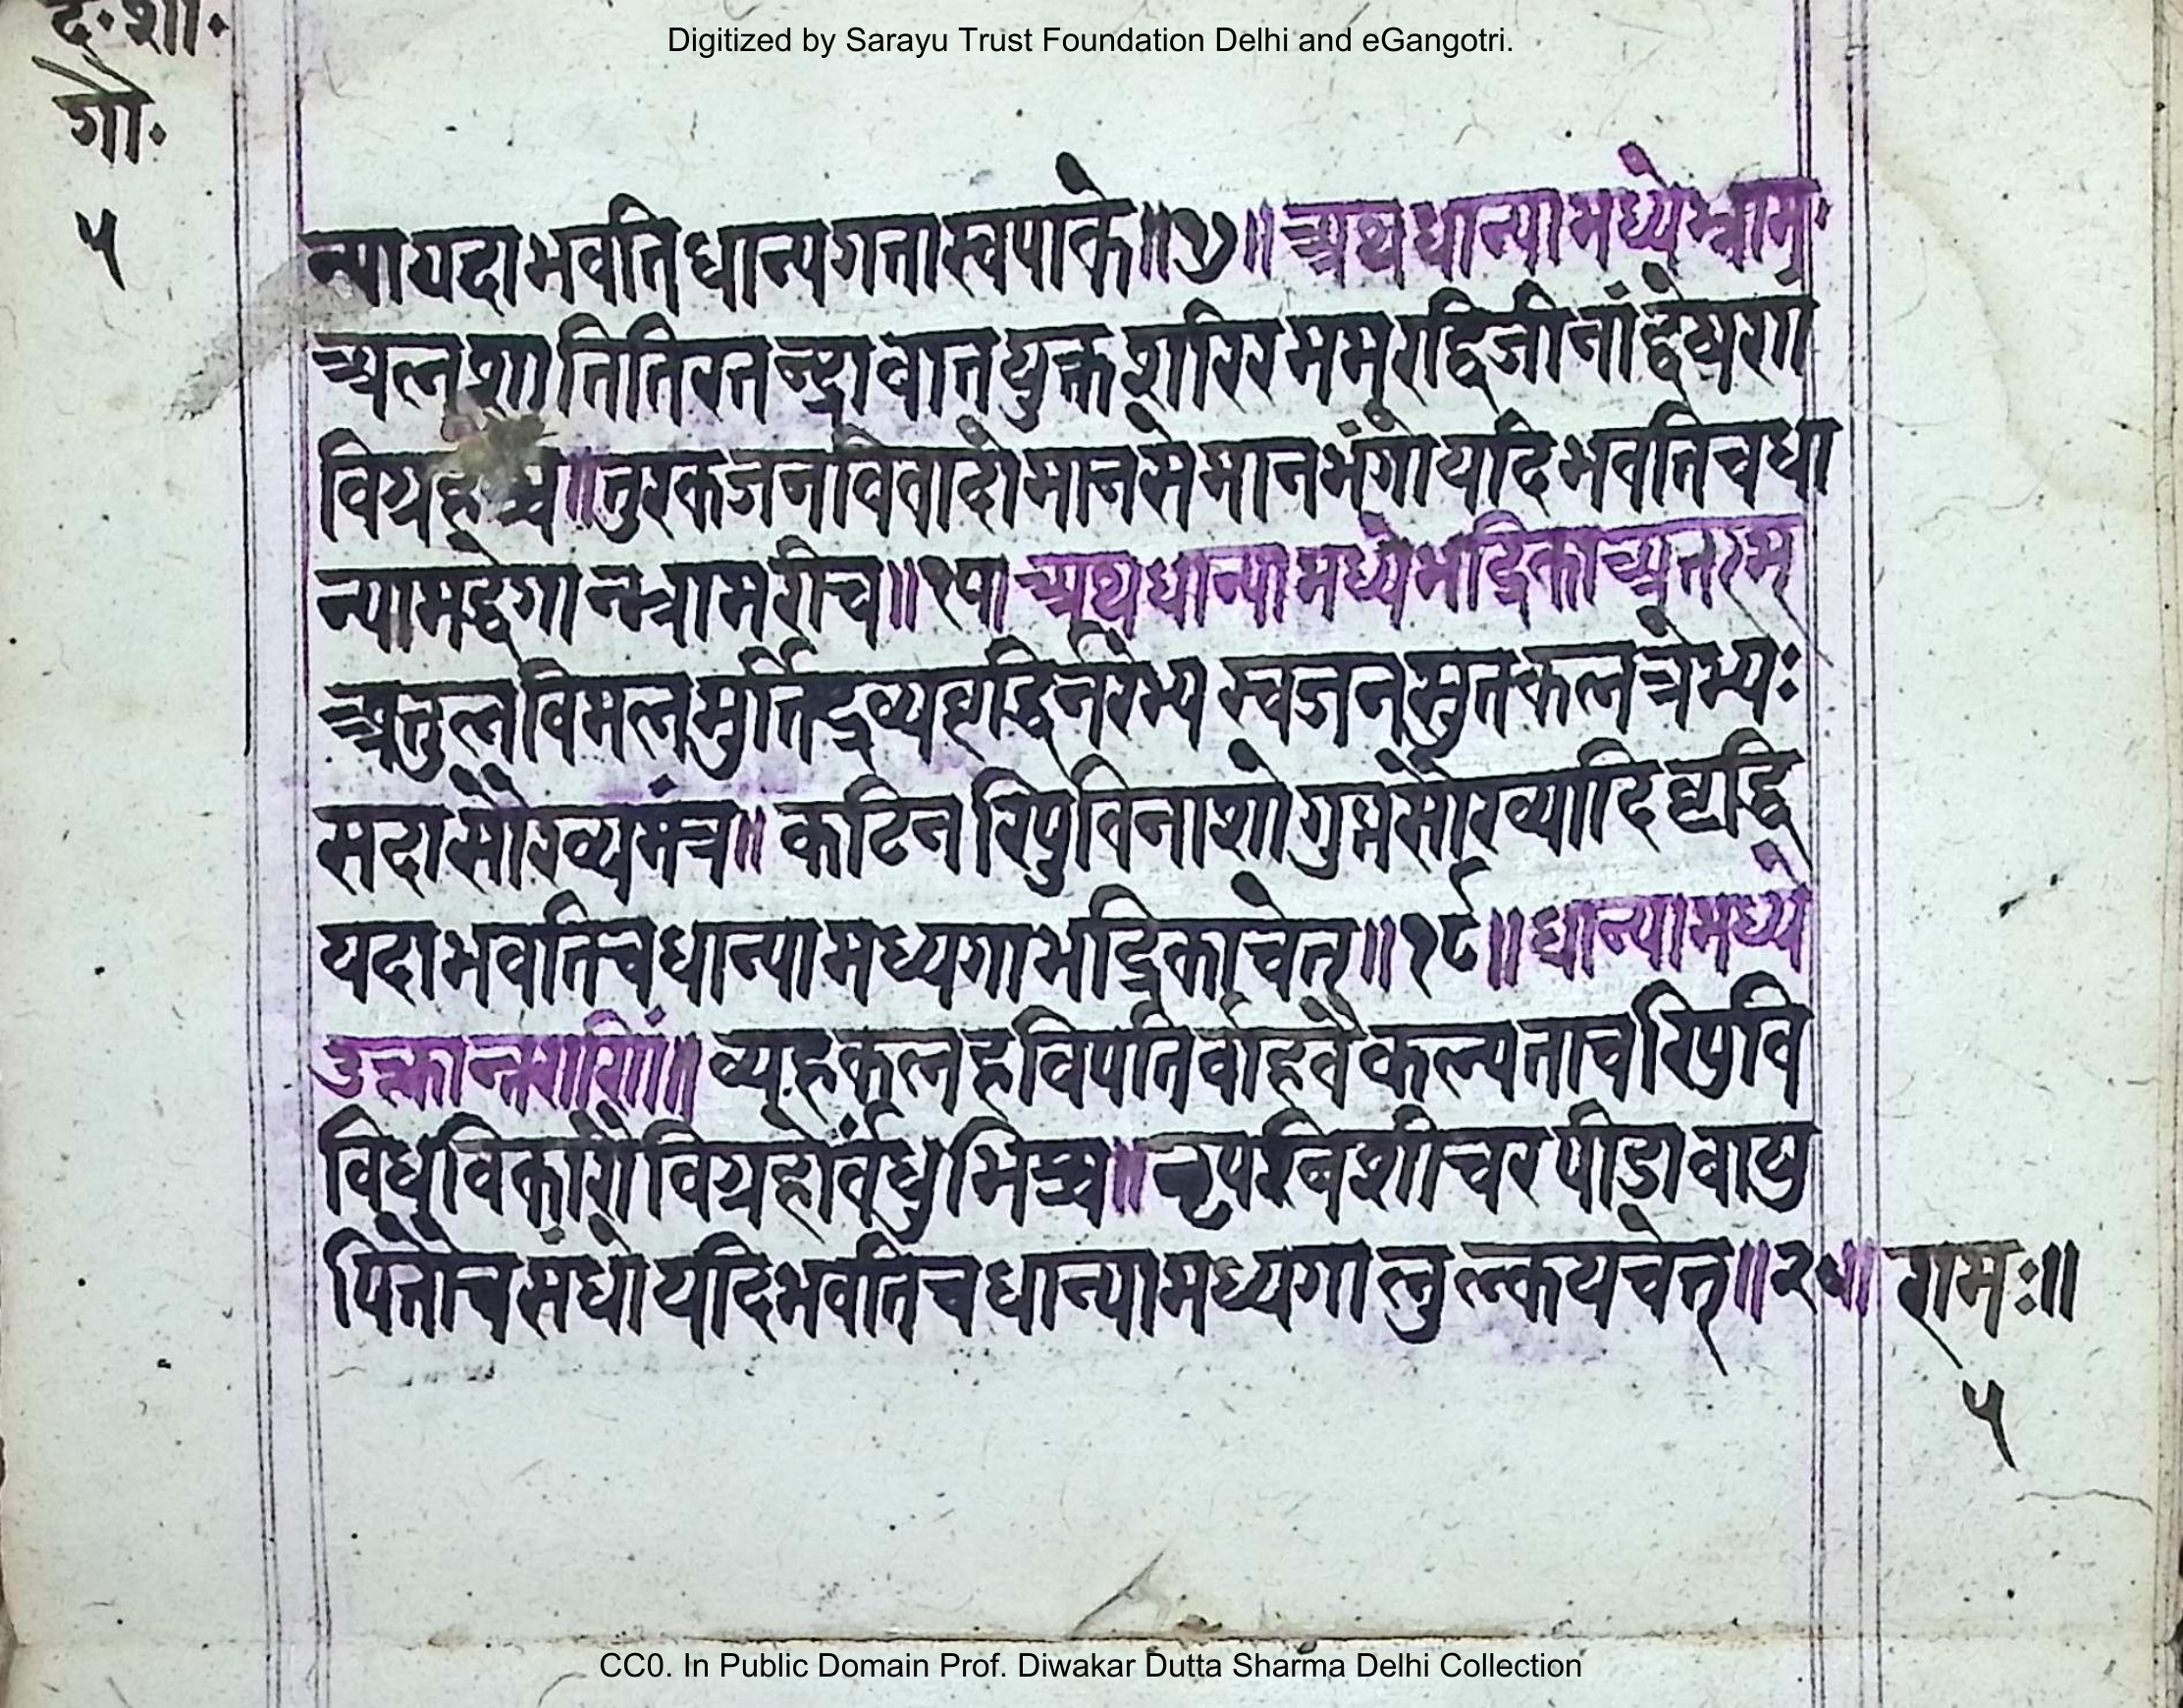 द॰शा॰
Digitized by Sarayu Trust Foundation Delhi and eGangotri.
गो॰
५
न्यायदाभवतिधान्यगत्तास्वपाके॥१७॥अथधान्यामध्येभ्राम॰
अलशातितिरतन्द्रावातयुक्तशरिरममूराद्विजीनांद्वेष्यरा
विग्रहश्च॥तुरकजनविवादोमानसेमानभंगोयदिभवतिचधा
न्यामद्धेगान्भ्रामरीच॥१८॥अथधान्यामध्येभद्रिकाअन्तरम्
अतुलविमलमुर्तिद्रव्यवृद्धिर्नरेभ्य स्वजनसुतकलत्रेभ्यः
सदासौख्यमंत्र॥कटिनरिपुविनाशोगुप्तसौख्यादिवृद्धि
यदाभवतिचधान्यामध्यगाभद्रिकाचेत्॥१९॥धान्यामध्ये
व्यूहकलहविपतिर्वाहवैकल्पताचरिपुवि
विधुविकारोविग्रहोर्वंधुभिश्च॥नृप पीडावायु
पित्तौचसंधोयदिभवतिचधान्यामध्यगालुल्कयचेत्॥२०॥ रामः॥
५
CC0. In Public Domain Prof. Diwakar Dutta Sharma Delhi Collection